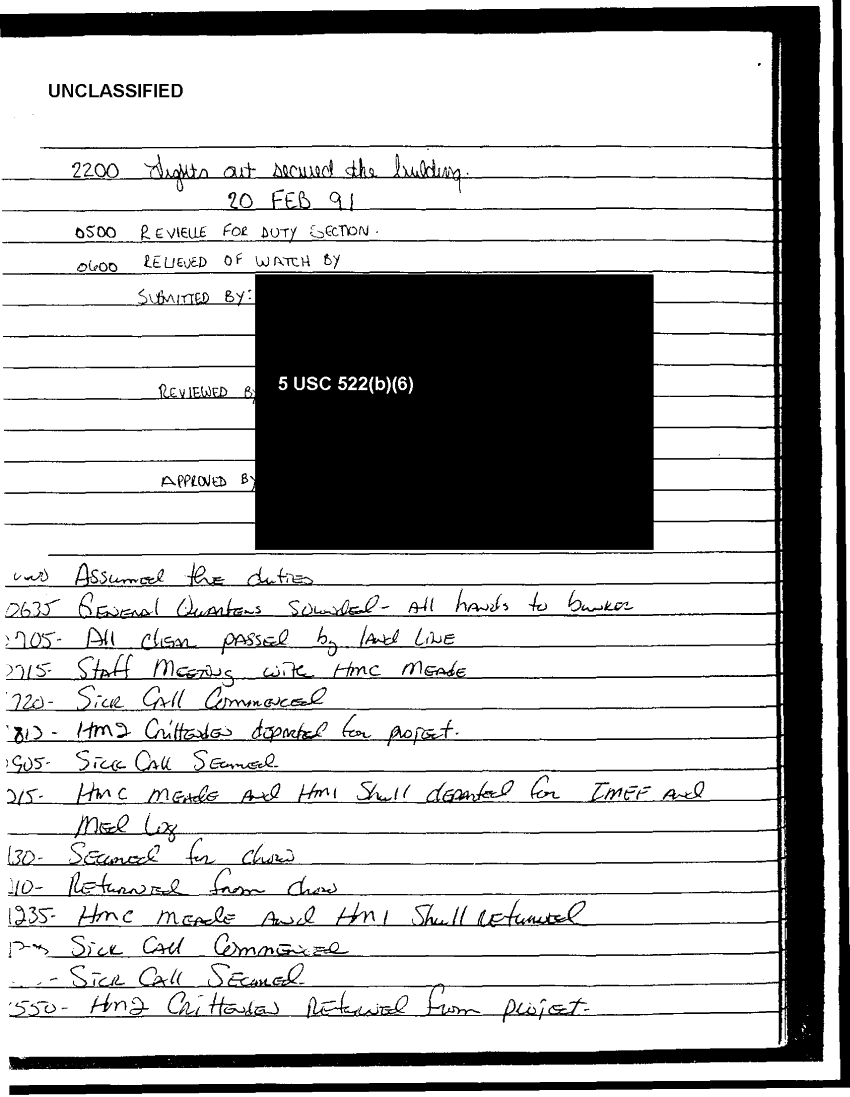 UNCLASSIFIED
2200 Lights out secured the building.
20 FEB 91
0500 REVIELLE FOR DUTY SECTION.
0600 RELIEVED OF WATCH BY
SUBMITTED BY:
5 USC 522(b)(6)
REVIEWED BY
APPROVED BY
Assumed the duties
0635 General Quarters Sounded - All hands to bunker
0705- All clear passed by land line
0715- Staff Meeting with HMC Meade
720- Sick Call Commenced
HM2 Crittenden departed for project.
905- Sick Call Secured
915- HMC Meade and HM1 Shull departed for IMEF and
Med Log
130- Secured for chow
Returned from chow
1235- HMC Meade and HM1 Shull returned
Sick Call Commenced
- Sick Call Secured
1550- HM2 Crittenden Returned from project-